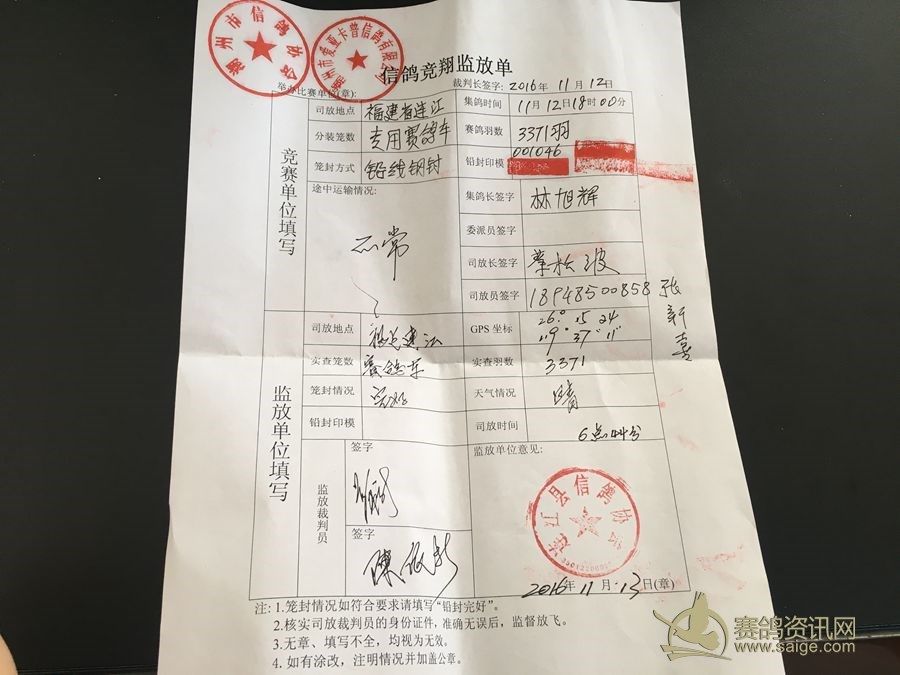 潮州市信鸽协会
潮州市爱亚卡普信鸽有限公司
信鸽竞翔监放单
举办比赛单位(章): 裁判长签字: 2016年 11月 12日
竞赛单位填写
司放地点 福建省连江 集鸽时间 11月12日18时00分
分装笼数 专用赛鸽车 赛鸽羽数 3371羽
笼封方式 铅线钢封 铅封印模 001046
途中运输情况: 正常
集鸽长签字 林旭辉
委派员签字
司放长签字 松波
司放员签字 18948500858 张新喜
监放单位填写
司放地点 福建连江 GPS 坐标 26° 15 24
119° 37' 11"
实查笼数 赛鸽车 实查羽数 3371
笼封情况 完好 天气情况 晴
铅封印模 司放时间 6点44分
监放裁判员 签字 监放单位意见:
签字
连江县信鸽协会
2016年 11月 13日(章)
注: 1.笼封情况如符合要求请填写“铅封完好”。
2.核实司放裁判员的身份证件，准确无误后，监督放飞。
3.无章、填写不全，均视为无效。
4.如有涂改，注明情况并加盖公章。
赛鸽资讯网
www.saige.com